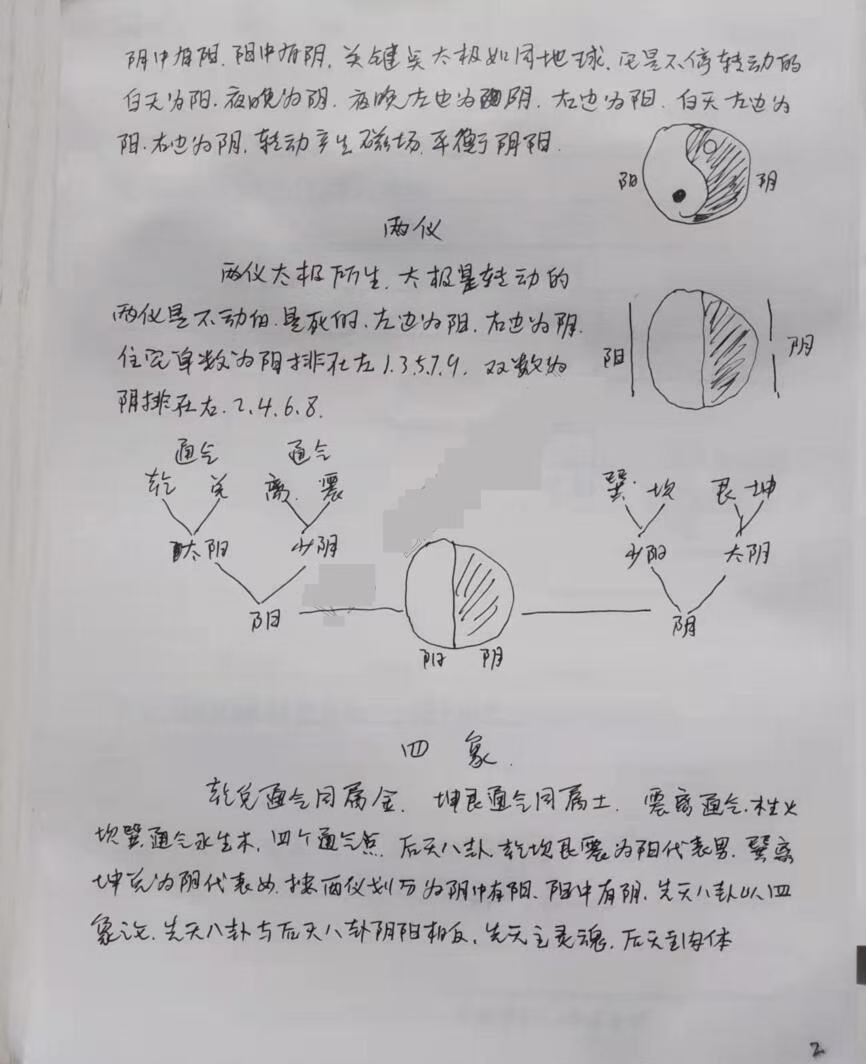 阴中有阳.阳中有阴,关键点太极如同地球,它是不停转动的
白天为阳.夜晚为阴.夜晚左边为阴.右边为阳.白天左边为
阳.右边为阴,转动产生磁场,平衡阴阳.
阳 阴
两仪
两仪太极所生,太极是转动的
两仪是不动的.是死的,左边为阳,右边为阴.
阳 阴
住宅单数为阳排在左1.3.5.7.9. 双数为
阴排在右.2.4.6.8.
通气 通气
乾 兑 离.震 巽.坎 艮坤
太阳 少阴 少阳 太阴
阳 阴
阳 阴
四 象.
乾兑通气同属金. 坤艮通气同属土. 震离通气.木生火
坎巽通气水生木,四个通气点. 后天八卦.乾坎艮震为阳代表男.巽离
坤兑为阴代表女.按两仪划分为阴中有阳.阳中有阴,先天八卦以四
象论.先天八卦与后天八卦阴阳相反,先天主灵魂,后天主肉体
2